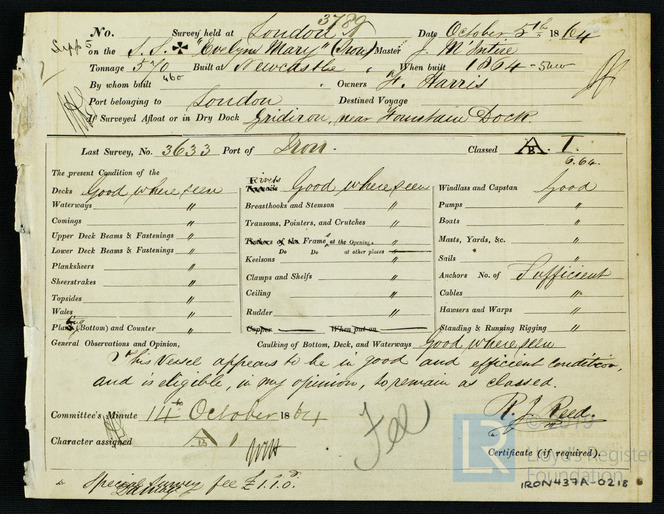 3789
No. Survey held at London Date October 5th 1864
on the S.S. "Evelyn Mary" (Iron) Master J. McIntire
Tonnage 570 Built at Newcastle When built 1864 - 5mo
460
By whom built " Owners F. Harris
Port belonging to London Destined Voyage
If Surveyed Afloat or in Dry Dock Gridiron, near Fountain Dock
Last Survey, No. 3633 Port of Iron. Classed A B 1.
6.64.
The present Condition of the
Decks Good where seen Rivets Good where seen Windlass and Capstan Good
Waterways " Breasthooks and Stemson " Pumps "
Comings " Transoms, Pointers, and Crutches " Boats "
Upper Deck Beams & Fastenings " Frames at the Openings " Masts, Yards, &c. "
Do Do at other places "
Lower Deck Beams & Fastenings " Keelsons " Sails "
Planksheers " Clamps and Shelfs " Anchors No. of Sufficient
Sheerstrakes " Ceiling " Cables "
Topsides " Rudder " Hawsers and Warps "
Wales " Copper When put on Standing & Running Rigging "
Plating (Bottom) and Counter "
General Observations and Opinion, Caulking of Bottom, Deck, and Waterways Good where seen
This Vessel appears to be in good and efficient condition,
and is eligible, in my opinion, to remain as classed.
Committee's Minute 14th October 1864
R. J. Reed.
Character assigned A B 1
Fee
Certificate (if required).
Special Survey fee £1.1.0.
Damage
LR
© 2019
Lloyd's Register
Foundation
IRON437A-0218